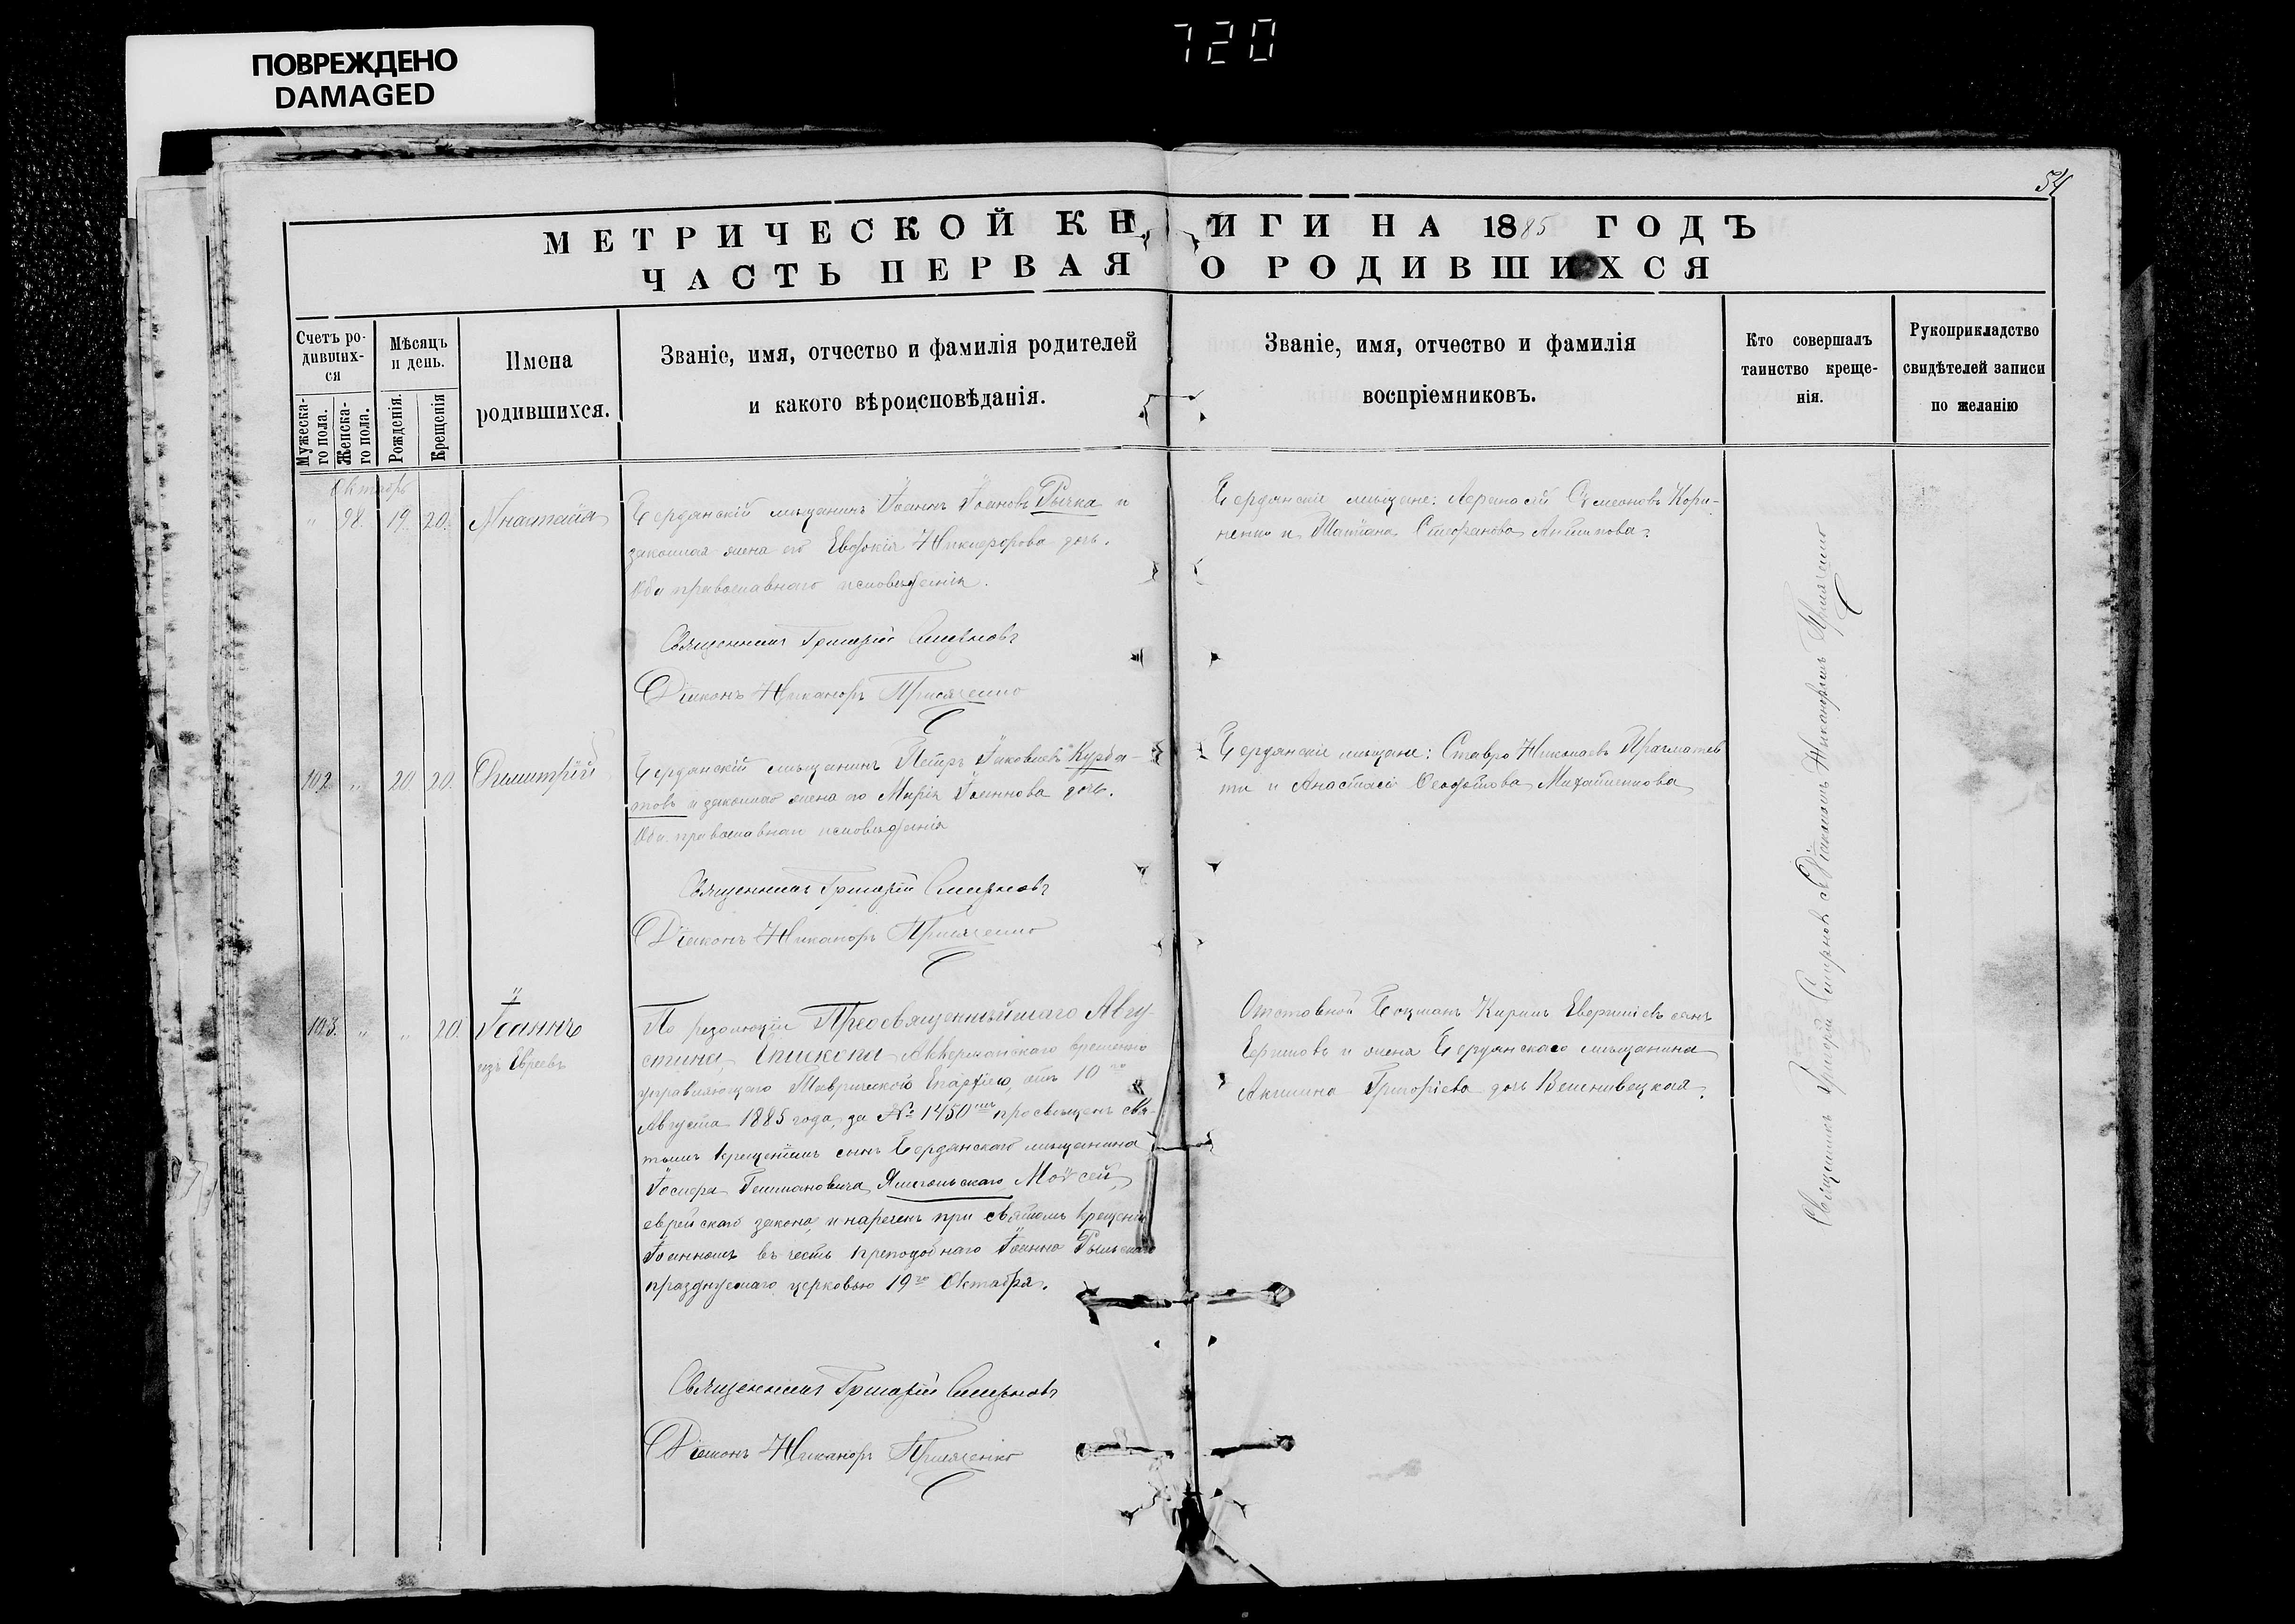 720
ПОВРЕЖДЕНО
DAMAGED
54
МЕТРИЧЕСКОЙ КНИГИ НА 1885 ГОДЪ
ЧАСТЬ ПЕРВАЯ О РОДИВШИХСЯ
Счетъ ро-
дивших-
ся
Мужеска-
го пола.
Женска-
го пола.
Мѣсяцъ
и день.
Рожденія.
Крещенія
Имена
родившихся.
Званіе, имя, отчество и фамилія родителей
и какого вѣроисповѣданія.
Званіе, имя, отчество и фамилія
воспріемниковъ.
Кто совершалъ
таинство креще-
нія.
Рукоприкладство
свидѣтелей записи
по желанію
Октябрь
" 98. 19. 20. Анастасія
Бердянскій мѣщанинъ Іоаннъ Іоановъ Рычка и
законная жена его Евдокія Никифорова дочь.
Оба православнаго исповѣданія.
Священникъ Григорій Смирновъ
Діаконъ Никаноръ
Бердянскіе мѣщане: Симеоновъ Кори-
ненко и Татіана Стефанова Антипова.
102. " 20. 20. Димитрій
Бердянскій мѣщанинъ Петръ Іаковлевъ Курба-
товъ и законная жена его Марія Іоаннова дочь.
Оба православнаго исповѣданія
Священникъ Григорій Смирновъ
Діаконъ Никаноръ
Бердянскіе мѣщане: Ставро Николаевъ
ти и Анастасія
103. " " 20. Іоаннъ
изъ Евреевъ
По резолюціи Преосвященнѣйшаго Авгу-
стина, Епископа Аккерманскаго временно
управляющаго Таврическою Епархіею, отъ 10го
Августа 1885 года, за № 1450мъ просвѣщенъ свя-
тымъ крещеніемъ сынъ Бердянскаго мѣщанина
Іосифа Ямпольскаго Мойсей,
еврейскаго закона, и нареченъ при святомъ крещеніи
Іоанномъ въ честь преподобнаго Іоанна Рыльскаго
празднуемаго церковью 19го Октября.
Священникъ Григорій Смирновъ
Діаконъ Никаноръ
Отставной Боцманъ Кирилъ сынъ
и жена Бердянскаго мѣщанина
Акилина Григоріева дочь Вишневецкая.
Священникъ Григорій Смирновъ съ Діакономъ Никаноромъ